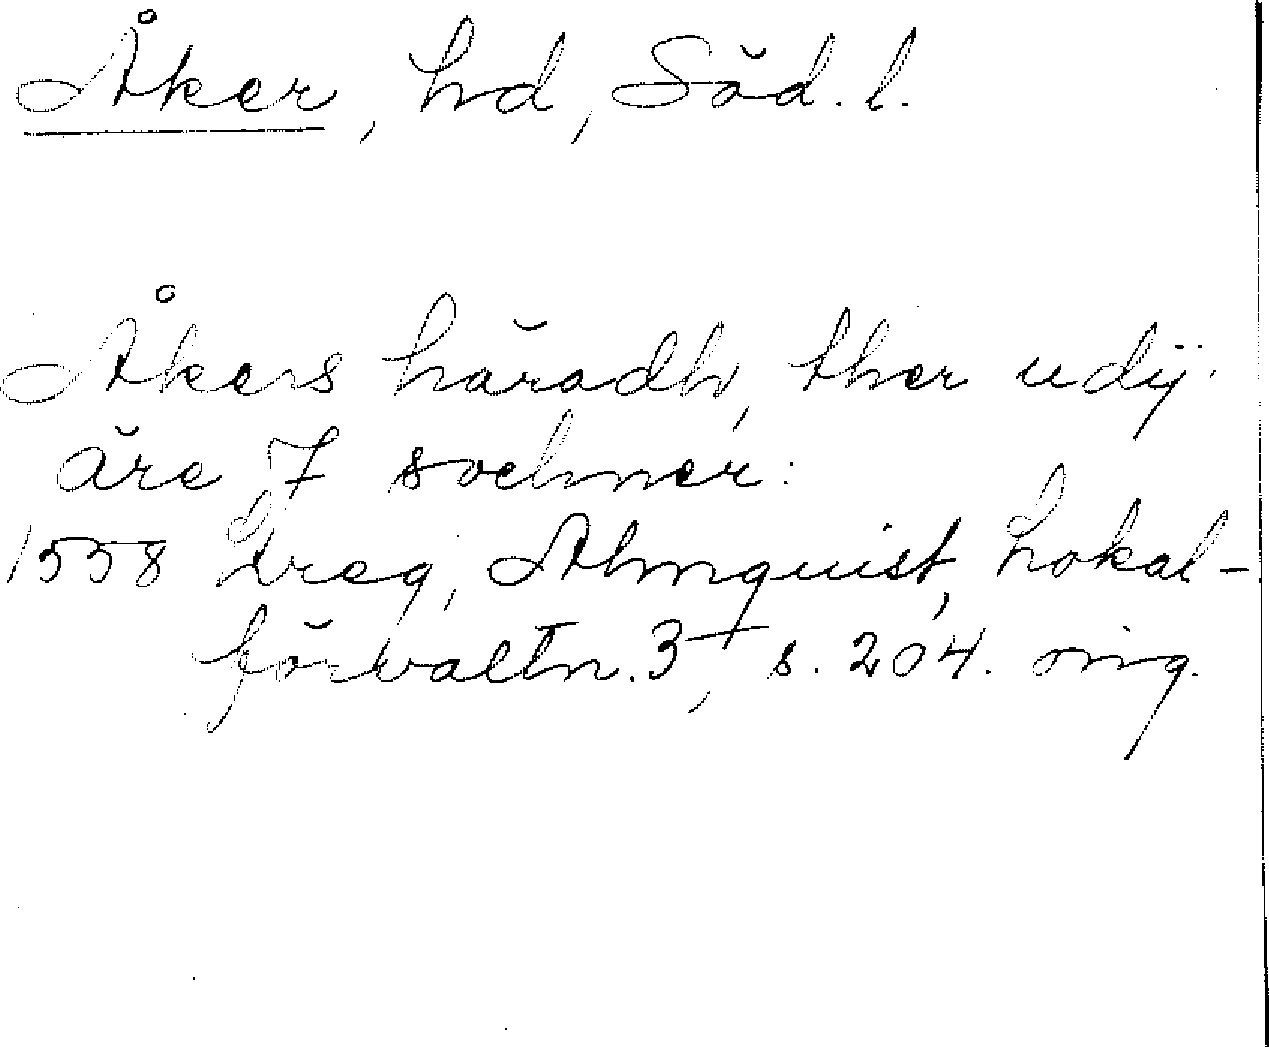 Åker, hd, Söd. l.
Åkers häradh, ther udÿ
äre 7 sochner:
1558 Dreg, Almquist, Lokal-
förvaltn. 3, s. 204. orig.